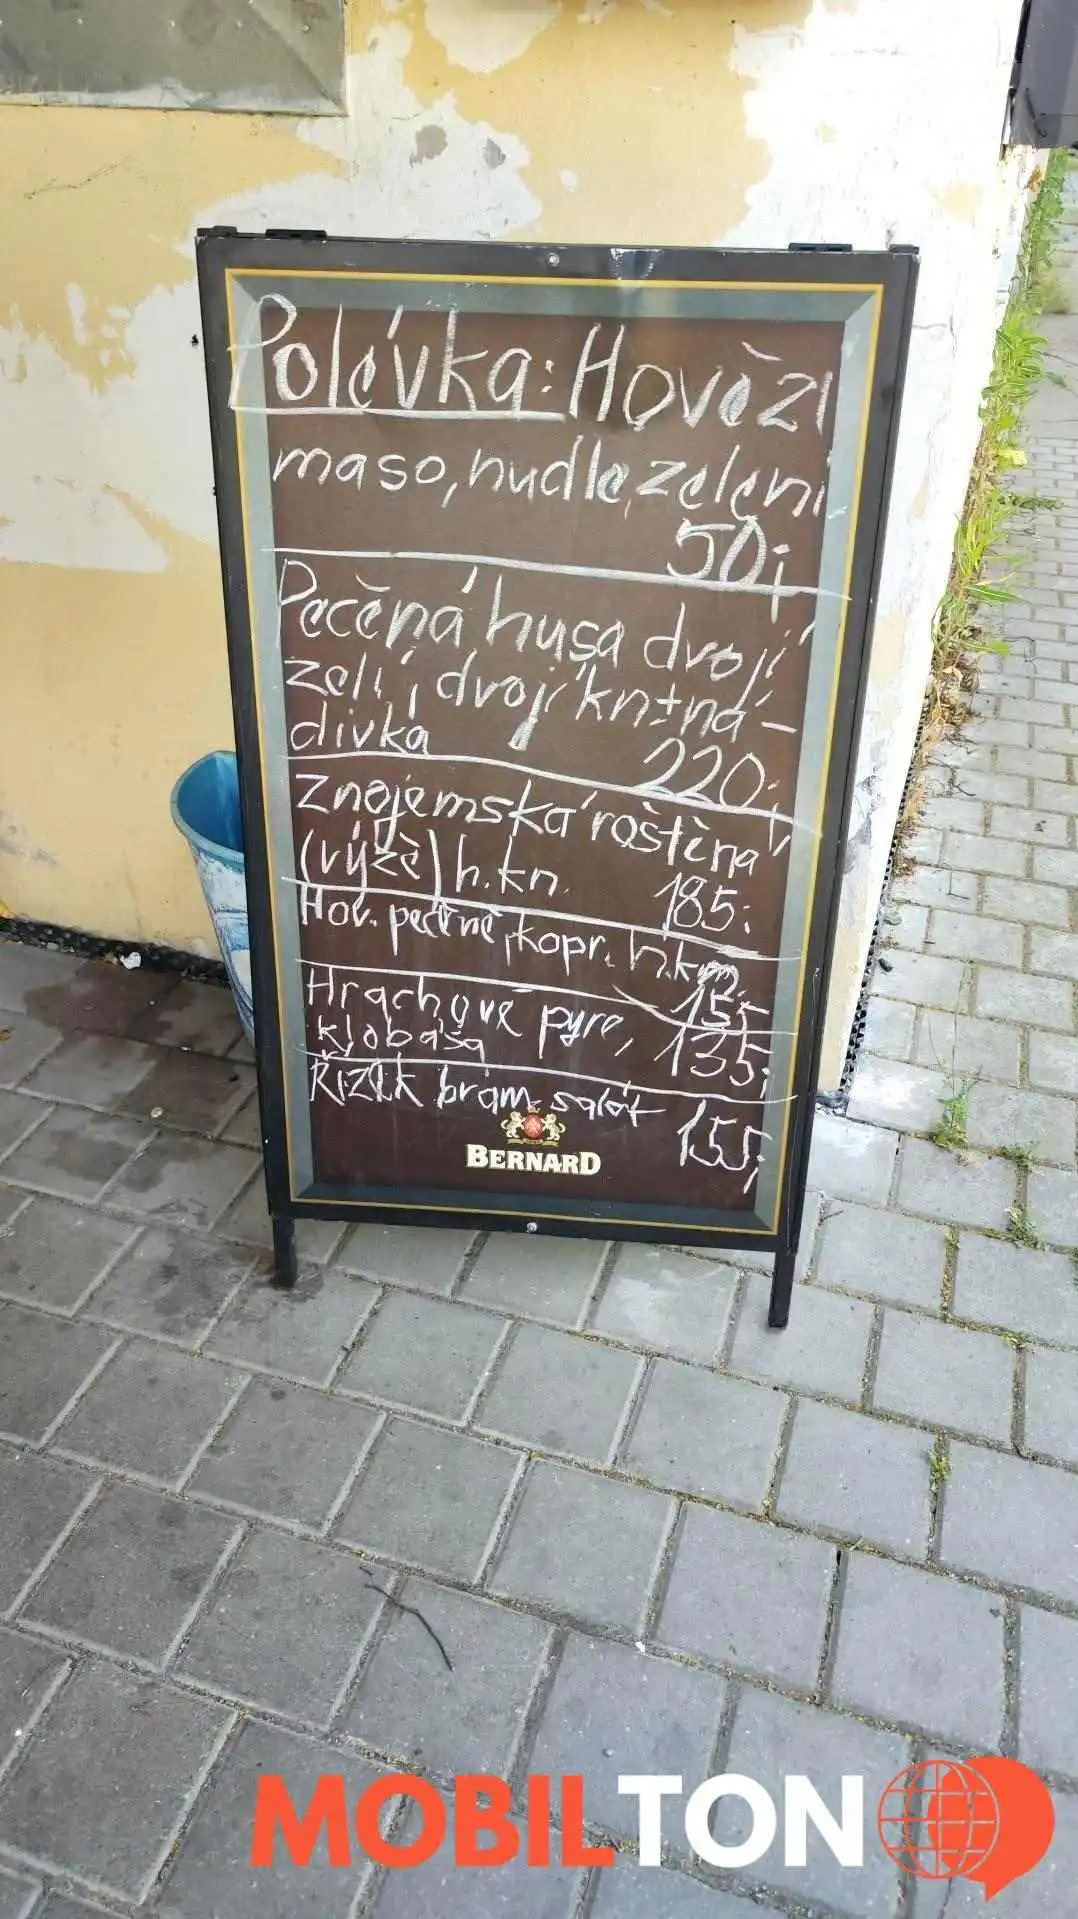 Polévka: Hovězí
maso, nudle, zelení
50,-
Pečěná husa dvojí
zelí, dvojí kn+ná-
divka
220,-
Znojemská roštěná
(výžě) h.kn.
185,-
Hov. pečěně, kopr. h.kn.
155
Hrachové pyre,
klobása
135,-
Řízek bram. salát
155,-
BERNARD
MOBILTON